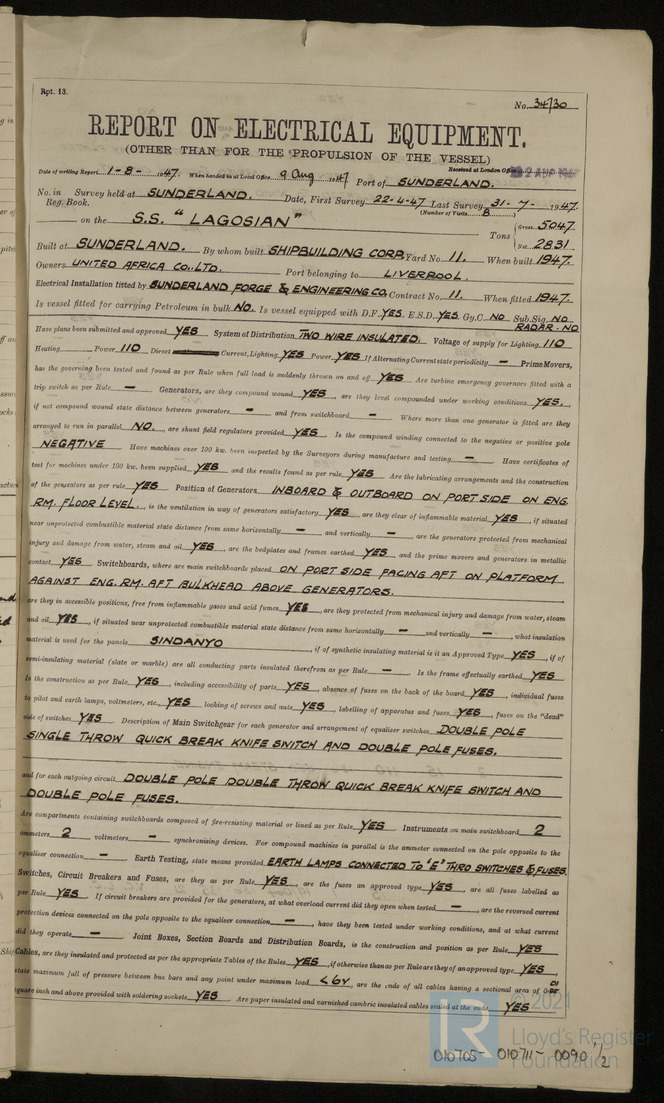 Rpt. 13.
No. 34730
REPORT ON ELECTRICAL EQUIPMENT.
(OTHER THAN FOR THE PROPULSION OF THE VESSEL)
Date of writing Report 1-8- 1947. When handed in at Local Office 9 Aug 1947 Port of SUNDERLAND. Received at London Office
No. in Survey held at SUNDERLAND. Date, First Survey 22-4-47 Last Survey 31-7-1947.
Reg. Book. (Number of Visits 8 )
on the S.S. "LAGOSIAN" Tons { Gross 5047. Net 2831.
Built at SUNDERLAND. By whom built SHIPBUILDING CORP. Yard No. 11. When built 1947.
Owners UNITED AFRICA CO. LTD. Port belonging to LIVERPOOL.
Electrical Installation fitted by SUNDERLAND FORGE & ENGINEERING CO. Contract No. 11. When fitted 1947.
Is vessel fitted for carrying Petroleum in bulk NO. Is vessel equipped with D.F. YES. E.S.D. YES Gy.C. NO Sub.Sig. NO
RADAR. NO
Have plans been submitted and approved YES System of Distribution TWO WIRE INSULATED. Voltage of supply for Lighting 110
Heating Power 110 Direct Current, Lighting YES Power YES If Alternating Current state periodicity - Prime Movers,
has the governing been tested and found as per Rule when full load is suddenly thrown on and off YES Are turbine emergency governors fitted with a
trip switch as per Rule - Generators, are they compound wound YES, are they level compounded under working conditions YES.,
if not compound wound state distance between generators - and from switchboard - Where more than one generator is fitted are they
arranged to run in parallel NO., are shunt field regulators provided YES Is the compound winding connected to the negative or positive pole
NEGATIVE Have machines over 100 kw. been inspected by the Surveyors during manufacture and testing - Have certificates of
test for machines under 100 kw. been supplied YES and the results found as per rule YES Are the lubricating arrangements and the construction
of the generators as per rule YES Position of Generators INBOARD & OUTBOARD ON PORT SIDE ON ENG.
RM. FLOOR LEVEL., is the ventilation in way of generators satisfactory YES, are they clear of inflammable material YES, if situated
near unprotected combustible material state distance from same horizontally - and vertically -, are the generators protected from mechanical
injury and damage from water, steam and oil YES, are the bedplates and frames earthed YES and the prime movers and generators in metallic
contact YES Switchboards, where are main switchboards placed ON PORT SIDE FACING AFT ON PLATFORM
AGAINST ENG. RM. AFT BULKHEAD ABOVE GENERATORS.
are they in accessible positions, free from inflammable gases and acid fumes YES, are they protected from mechanical injury and damage from water, steam
and oil YES, if situated near unprotected combustible material state distance from same horizontally - and vertically -, what insulation
material is used for the panels SINDANYO, if of synthetic insulating material is it an Approved Type YES, if of
semi-insulating material (slate or marble) are all conducting parts insulated therefrom as per Rule - Is the frame effectually earthed YES
Is the construction as per Rule YES, including accessibility of parts YES, absence of fuses on the back of the board YES, individual fuses
to pilot and earth lamps, voltmeters, etc., YES locking of screws and nuts YES, labelling of apparatus and fuses YES, fuses on the "dead"
side of switches YES Description of Main Switchgear for each generator and arrangement of equaliser switches DOUBLE POLE
SINGLE THROW QUICK BREAK KNIFE SWITCH AND DOUBLE POLE FUSES.
and for each outgoing circuit DOUBLE POLE DOUBLE THROW QUICK BREAK KNIFE SWITCH AND
DOUBLE POLE FUSES.
Are compartments containing switchboards composed of fire-resisting material or lined as per Rule YES Instruments on main switchboard 2
ammeters 2 voltmeters - synchronising devices. For compound machines in parallel is the ammeter connected to the pole opposite to the
equaliser connection - Earth Testing, state means provided EARTH LAMPS CONNECTED TO "E" THRO SWITCHES & FUSES.
Switches, Circuit Breakers and Fuses, are they as per Rule YES, are the fuses an approved type YES, are all fuses labelled as
per Rule YES If circuit breakers are provided for the generators, at what overload current did they open when tested -, are the reversed current
protection devices connected on the pole opposite to the equaliser connection -, have they been tested under working conditions, and at what current
did they operate - Joint Boxes, Section Boards and Distribution Boards, is the construction and position as per Rule YES
Cables, are they insulated and protected as per the appropriate Tables of the Rules YES, if otherwise than as per Rule are they of an approved type YES,
state maximum fall of pressure between bus bars and any point under maximum load <6V, are the ends of all cables having a sectional area of 0·01
square inch and above provided with soldering sockets YES Are paper insulated and varnished cambric insulated cables sealed at the ends YES
© 2021
LR
Lloyd's Register
Foundation
010705 - 010711 - 0090 1/2